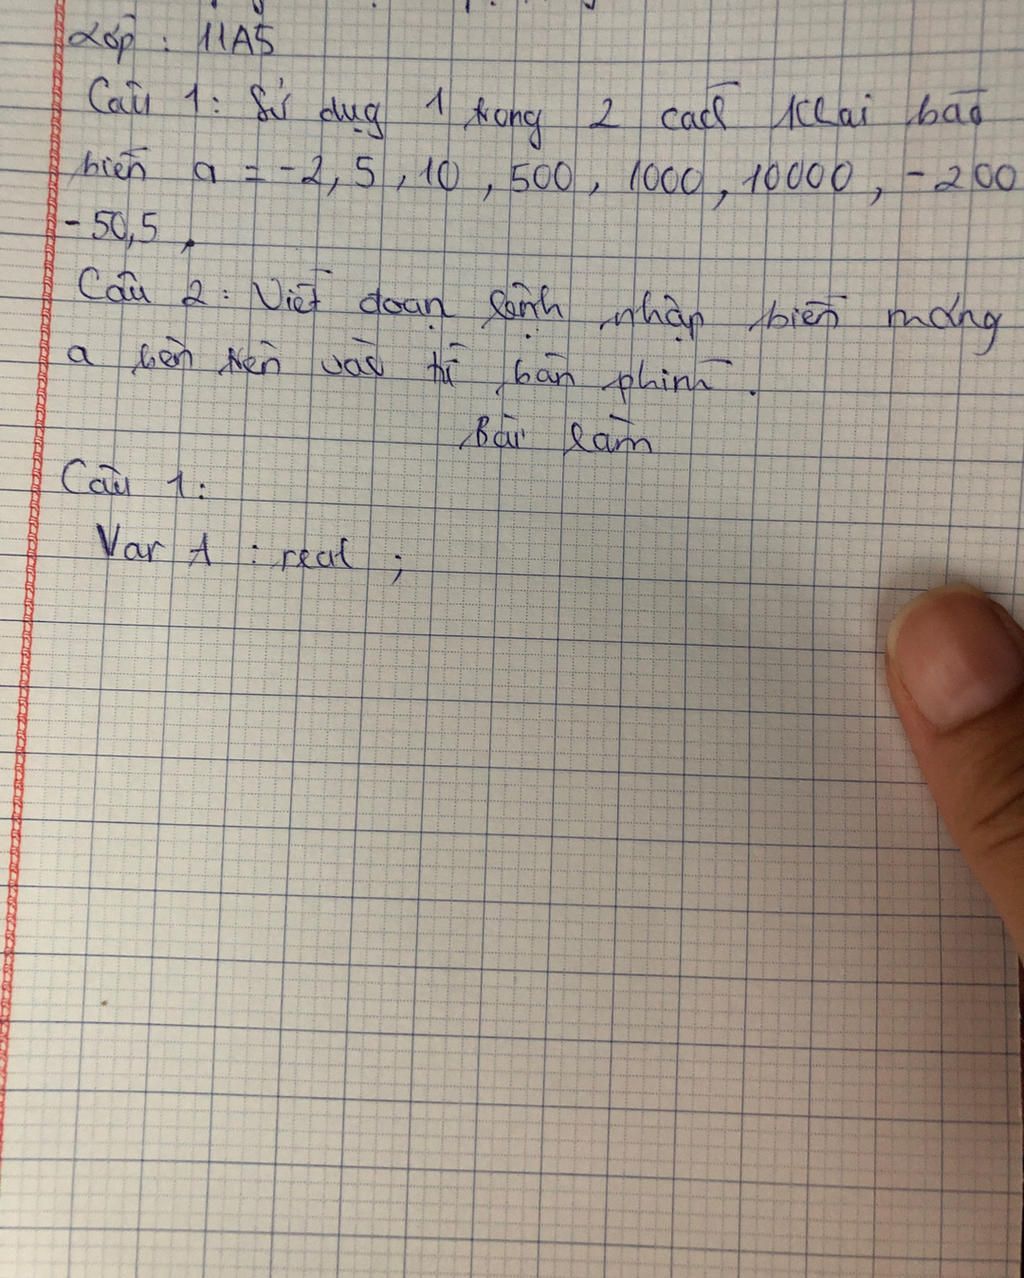 Lớp : 11A5
Câu 1: Sử dụg 1 trong 2 cách khai báo
biến a = -2, 5, 10, 500, 1000, 10000, -200
-50,5,
Câu 2: Viết đoạn lệnh nhập biến mảng
a bên trên vào từ bàn phím.
Bài làm
Câu 1:
Var A : real ;